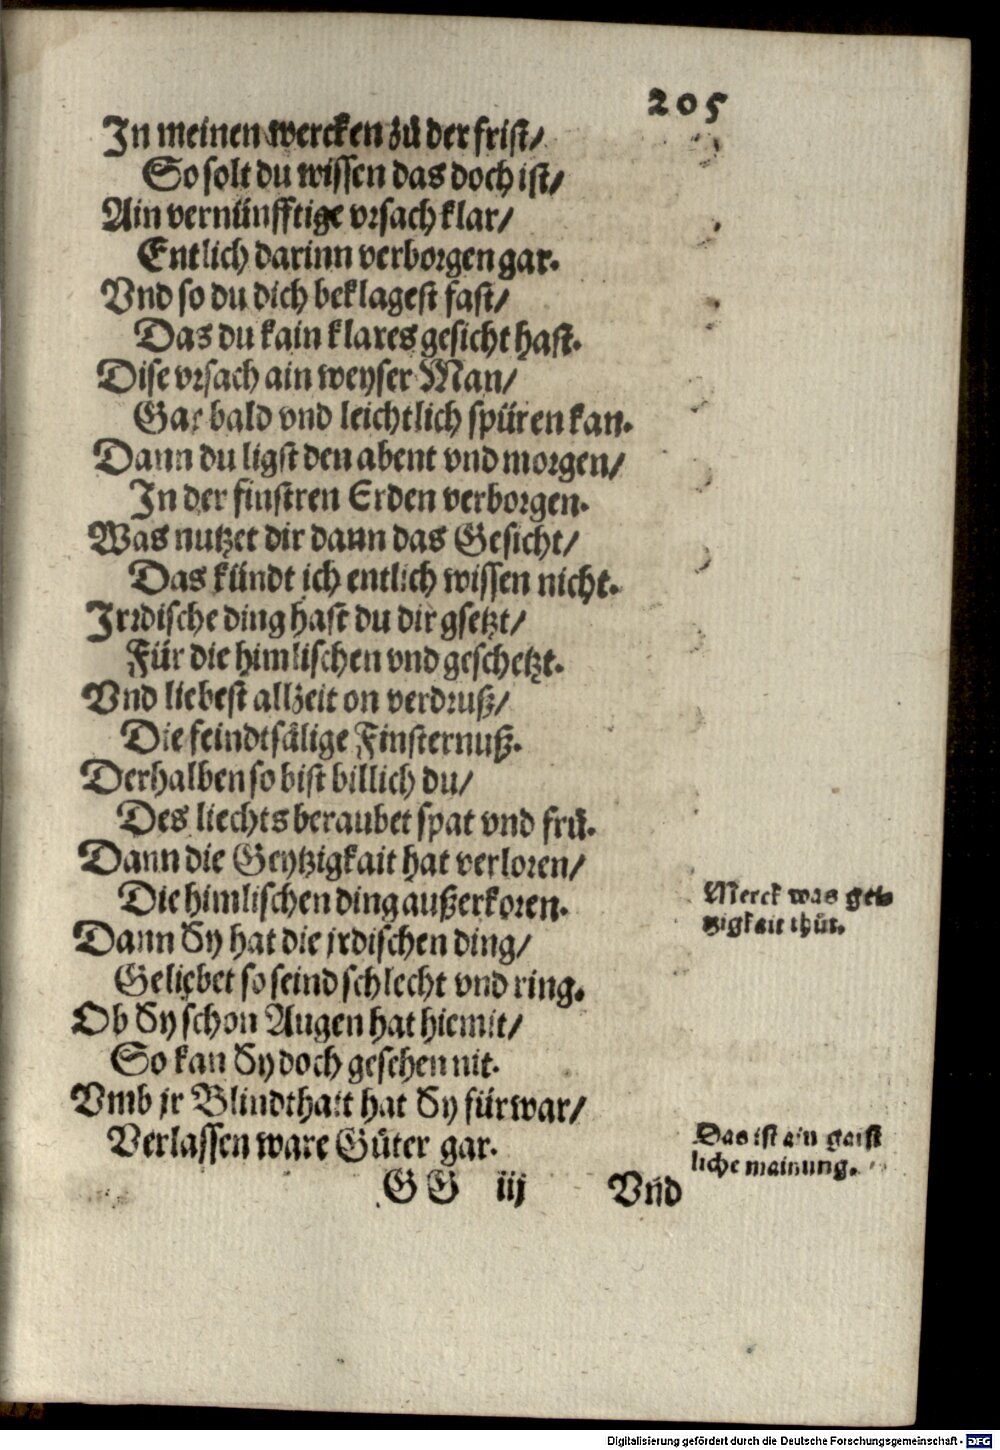 205
In meinen wercken zů der frist/
So solt du wissen das doch ist/
Ain vernünfftige vrsach klar/
Entlich darinn verborgen gar.
Vnd so du dich beklagest fast/
Das du kain klares gesicht hast.
Dise vrsach ain weyser Man/
Gar bald vnd leichtlich spüren kan.
Dann du ligst den abent vnd morgen/
In der finstren Erden verborgen.
Was nutzet dir dann das Gesicht/
Das kündt ich entlich wissen nicht.
Irrdische ding hast du dir gsetzt/
Für die himlischen vnd geschetzt.
Vnd liebest allzeit on verdruß/
Die feindtsälige Finsternuß.
Derhalben so bist billich du/
Des liechts beraubet spat vnd frů.
Dann die Geytzigkait hat verloren/
Die himlischen ding außerkoren.
Dann Sy hat die jrdischen ding/
Geliebet so seind schlecht vnd ring.
Ob Sy schon Augen hat hiemit/
So kan Sy doch gesehen nit.
Vmb jr Blindthait hat Sy fürwar/
Verlassen ware Güter gar.
Merck was gei-
tzigkait thůt.
Das ist ain gaist
liche mainung.
GG iij Vnd
Digitalisierung gefördert durch die Deutsche Forschungsgemeinschaft - DFG